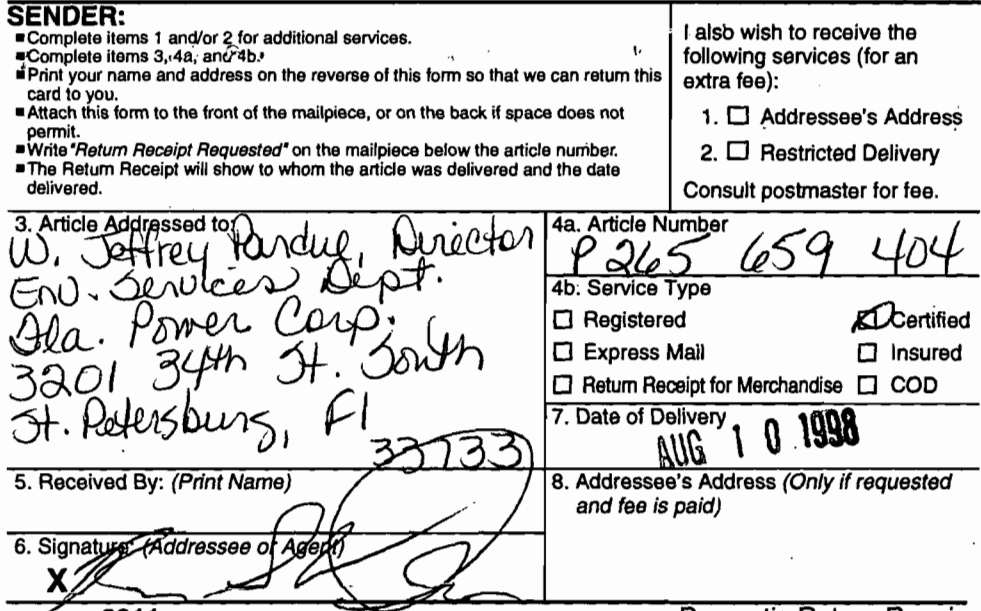 SENDER:
■Complete items 1 and/or 2 for additional services.
■Complete items 3, 4a, and 4b.
■Print your name and address on the reverse of this form so that we can return this
card to you.
■Attach this form to the front of the mailpiece, or on the back if space does not
permit.
■Write "Return Receipt Requested" on the mailpiece below the article number.
■The Return Receipt will show to whom the article was delivered and the date
delivered.
I also wish to receive the
following services (for an
extra fee):
1. ☐ Addressee's Address
2. ☐ Restricted Delivery
Consult postmaster for fee.
3. Article Addressed to:
W. Jeffrey Pardue, Director
Env. Services Dept.
Fla. Power Corp.
3201 34th St. South
St. Petersburg, Fl
33733
4a. Article Number
P 265 659 404
4b. Service Type
☐ Registered
☒ Certified
☐ Express Mail
☐ Insured
☐ Return Receipt for Merchandise ☐ COD
7. Date of Delivery
AUG 10 1998
5. Received By: (Print Name)
8. Addressee's Address (Only if requested
and fee is paid)
6. Signature: (Addressee or Agent)
X